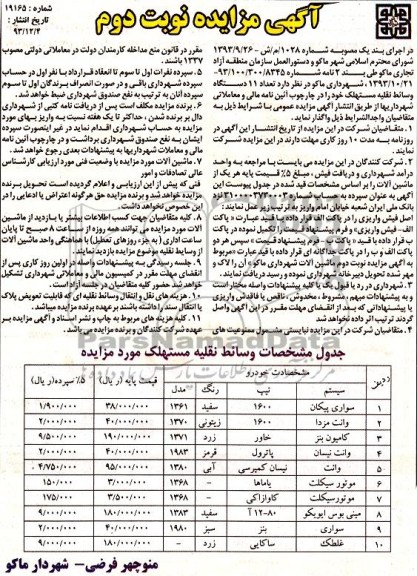 آگهی مزایده نوبت دوم
شماره : ۱۹۱۶۵
تاریخ انتشار :
۹۳/۱۲/۴
در اجرای بند یک مصوبه شماره ۱۰۲۸/م/ش - ۱۳۹۳/۹/۲۶
شورای محترم اسلامی شهر ماکو و دستورالعمل سازمان منطقه آزاد
تجاری ماکو طی بند ۲ نامه شماره ۹۳/۱۰۰/۳۰۰/۸۳۴۵-
۱۳۹۳/۱۰/۲۱ شهرداری ماکو در نظر دارد تعداد ۱۱ دستگاه
وسائط نقلیه مستهلک خود را در چارچوب آئین نامه مالی و معاملاتی
شهرداریها از طریق انتشار آگهی مزایده عمومی با شرایط ذیل به
متقاضیان واجدالشرایط ذیل واگذار نماید.
۱. متقاضیان شرکت در این مزایده از تاریخ انتشار این آگهی در
روزنامه به مدت ۱۰ روز کاری مهلت دارند در این مزایده شرکت
نمایند.
۲. شرکت کنندگان در این مزایده می بایست با مراجعه به واحد
درآمد شهرداری و دریافت فیش ، مبلغ ۵٪ قیمت پایه هر یک از
ماشین آلات را بر اساس مشخصات قید شده در جدول پیوست این
آگهی به عنوان سپرده به حساب شماره
بانک ملی ایران شعبه خیابان امام واریز و به ترتیب زیر عمل نمایند :
اصل فیش واریزی را در پاکت الف قرار داده با قید عبارت « پاکت
الف - فیش واریزی » و فرم پیشنهاد قیمت را تکمیل نموده در پاکت
ب قرار داده با قید « پاکت ب - فرم پیشنهاد قیمت » سپس هر دو
پاکت الف و ب را در پاکت جداگانه ای قرار داده با قید عبارت «مربوط
به آگهی مزایده نوبت دوم ماشین آلات شهرداری ماکو » آن را لاک و
مهر شده تحویل دبیرخانه شهرداری نموده و رسید دریافت نمایند.
۳. شهرداری در رد یا قبول یک یا کلیه پیشنهادات واصله مختار است
و به پیشنهادات مبهم ، مشروط ، مخدوش ، ناقص یا فاقد فیش واریزی
یا پیشنهاداتی که بعد از انقضای مهلت مقرر در این آگهی واصل
گردند ترتیب اثر داده نخواهد شد
۴. متقاضیان شرکت در این مزایده نبایستی مشمول ممنوعیت های
مقرر در قانون منع مداخله کارمندان دولت در معاملاتی دولتی مصوب
۱۳۳۷ باشند.
۵. سپرده نفرات اول تا سوم تا انعقاد قرارداد با نفر اول در حساب
سپرده شهرداری باقی و در صورت انصراف برندگان اول تا سوم
سپرده آنان به ترتیب به نفع صندوق شهرداری ضبط خواهد شد.
۶. برنده مزایده مکلف است پس از دریافت نامه کتبی از شهرداری
دال بر برنده شدن ، حداکثر تا یک هفته نسبت به واریز بهای مورد
مزایده به حساب شهرداری اقدام نماید در غیر اینصورت سپرده
ایشان به نفع صندوق شهرداری برداشت و در چارچوب آئین نامه
مالی و معاملات شهرداریها به پیشنهادات بعدی رجوع خواهد شد.
۷. ماشین آلات مورد مزایده با وضعیت فنی مورد ارزیابی کارشناس
عالی تصادفات و امور
فنی که پیش از این ارزیابی و اعلام گردیده است تحویل برنده
مزایده خواهد شد و برنده مزایده حق هر گونه اعتراض یا ادعایی را در
این خصوص نخواهد داشت.
۸. کلیه متقاضیان جهت کسب اطلاعات بیشتر یا بازدید از ماشین
آلات مورد مزایده ، می توانند همه روزه از ساعت ۸ صبح تا پایان
ساعت اداری (به جز روزهای تعطیل) با هماهنگی واحد ماشین آلات
از وسایط نقلیه موضوع مزایده بازدید نمایند.
۹. جلسه رسیدگی به پیشنهادات واصله در اولین روز کاری پس از
انقضای مهلت مقرر در کمیسیون مالی و معاملاتی شهرداری تشکیل
خواهد شد حضور کلیه متقاضیان در جلسه آزاد است.
۱۰. هزینه های نقل و انتقال وسائط نقلیه ای که قابلیت تعویض پلاک
یا انتقال سند را داشته باشند بر عهده برنده مزایده میباشد.
۱۱. کلیه هزینه های مربوط به چاپ و نشر اسناد و آگهی مزایده بر
عهده شرکت کنندگان و برنده مزایده می باشد.
ParsNamadData
جدول مشخصات وسائط نقلیه مستهلک مورد مزایده
ردیف مشخصات خودرو قیمت پایه (ریال) ۵٪ سپرده (ریال)
سیستم تیپ رنگ مدل
۱ سواری پیکان ۱۶۰۰ سفید ۱۳۶۱ ۳۸/۰۰۰/۰۰۰ ۱/۹۰۰/۰۰۰
۲ وانت مزدا ۱۶۰۰ زیتونی ۱۳۷۰ ۴۰/۰۰۰/۰۰۰ ۲/۰۰۰/۰۰۰
۳ کامیون بنز خاور زرد ۱۳۷۱ ۱۹۰/۰۰۰/۰۰۰ ۹/۵۰۰/۰۰۰
۴ وانت نیسان پاترول قرمز ۱۹۸۳ ۴۰/۰۰۰/۰۰۰ ۲/۰۰۰/۰۰۰
۵ وانت نیسان کمپرسی آبی ۱۳۸۰ ۹۵/۰۰۰/۰۰۰ ۴/۷۵۰/۰۰۰
۶ موتور سیکلت یاماها - ۱۳۶۸ ۳/۰۰۰/۰۰۰ ۱۵۰/۰۰۰
۷ موتورسیکلت کاوازاکی - ۱۳۶۸ ۳/۵۰۰/۰۰۰ ۱۷۵/۰۰۰
۸ مینی بوس ایویکو ۸۰-۱۲ آ سفید ۱۳۸۳ ۱۸۰/۰۰۰/۰۰۰ ۹/۰۰۰/۰۰۰
۹ سواری بنز سبز ۱۹۸۰ ۴۰/۰۰۰/۰۰۰ ۲/۰۰۰/۰۰۰
۱۰ غلطک ساکایی زرد - ۱۸۰/۰۰۰/۰۰۰ ۹/۰۰۰/۰۰۰
منوچهر فرضی- شهردار ماکو